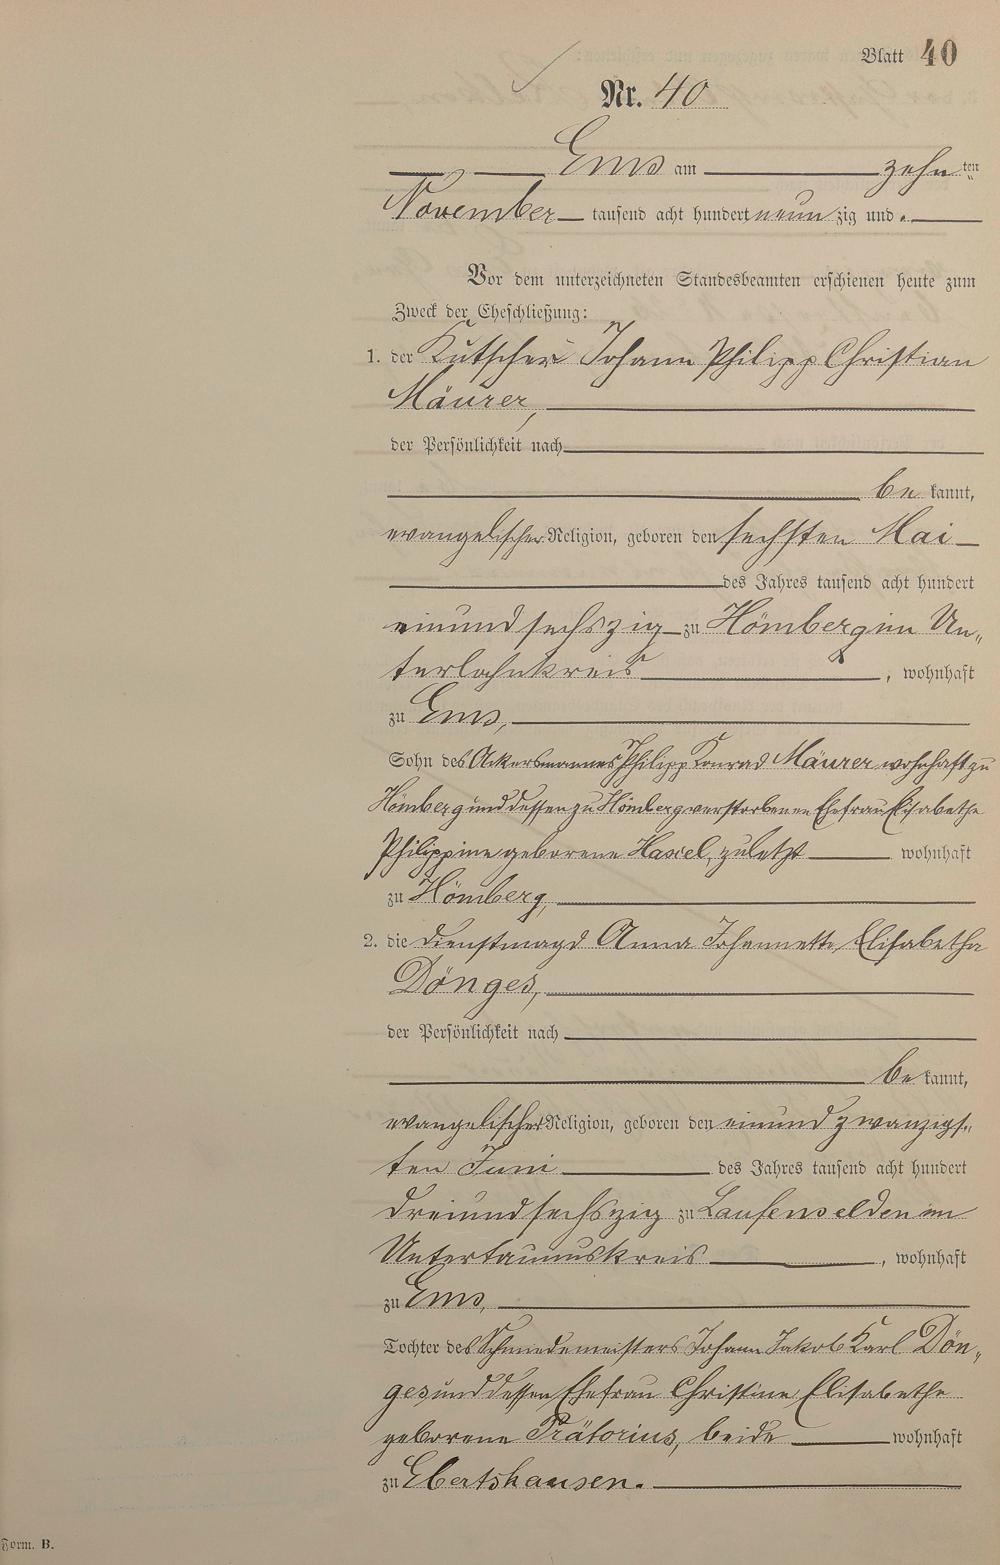 Blatt 40
Nr. 40
Ems am zehnten
November tausend acht hundert neunzig und
Vor dem unterzeichneten Standesbeamten erschienen heute zum
Zweck der Eheschließung:
1. der Kutscher Johann Philipp Christian
Mäurer,
der Persönlichkeit nach
bekannt,
evangelischer Religion, geboren den sechsten Mai
des Jahres tausend acht hundert
einundsechszig zu Hömberg im Un„
terlahnkreis, wohnhaft
zu Ems,
Sohn des Ackersmannes Philipp Konrad Mäurer wohnhaft zu
Hömberg und dessen zu Hömberg verstorbenen Ehefrau Elisabethe
Philippine geborene, zuletzt wohnhaft
zu Hömberg,
2. die Dienstmagd Anna Johannette Elisabetha
Dönges,
der Persönlichkeit nach
bekannt,
evangelischer Religion, geboren den einundzwanzigs„
ten Juni des Jahres tausend acht hundert
dreiundsechszig zu Laufenselden im
Untertaunuskreis, wohnhaft
zu Ems,
Tochter des Schmiedemeisters Johann Jakob Karl Dön„
ges und dessen Ehefrau Christine Elisabethe
geborene Prätorius, beide wohnhaft
zu Ebertshausen.
Form. B.